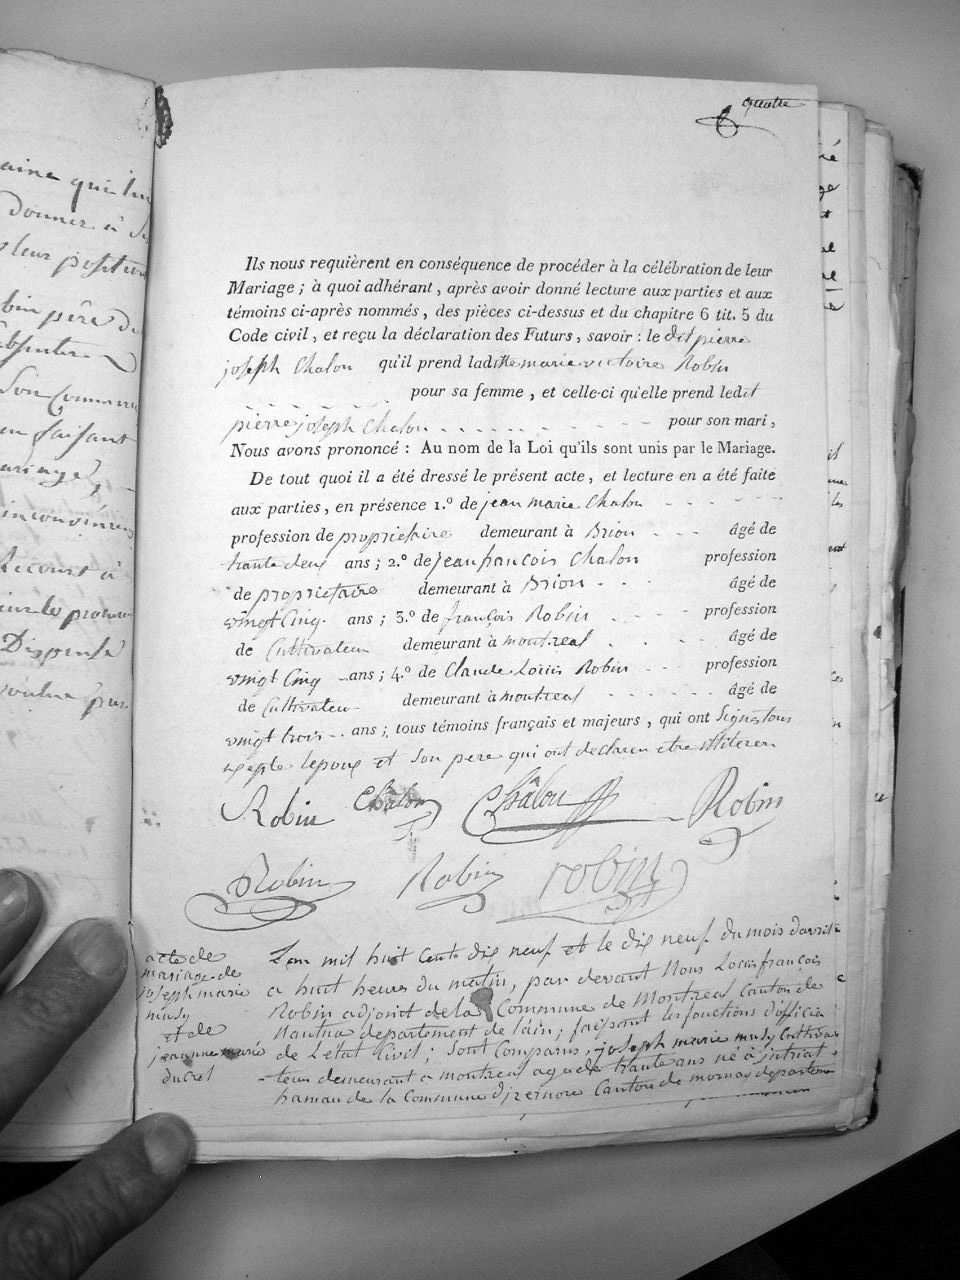 quatre
aine qui lui
donner à
leur position
bin père
absenter
Son Consen
en faisant
mariage,
inconvénien
Recours à
Dispense
voulu
Ils nous requièrent en conséquence de procéder à la célébration de leur
Mariage ; à quoi adhérant , après avoir donné lecture aux parties et aux
témoins ci-après nommés, des pièces ci-dessus et du chapitre 6 tit. 5 du
Code civil, et reçu la déclaration des Futurs, savoir : le dit pierre
joseph Chalon qu'il prend ladite marie victoire Robin
pour sa femme , et celle-ci qu'elle prend ledit
pierre joseph Chalon - - - - - - - - - pour son mari ,
Nous avons prononcé : Au nom de la Loi qu'ils sont unis par le Mariage.
De tout quoi il a été dressé le présent acte, et lecture en a été faite
aux parties, en présence 1.º de jean marie Chalon - - - - -
profession de propriétaire demeurant à Brion - - - âgé de
trante deux ans ; 2.º de jean françois Chalon profession
de propriétaire demeurant à Brion - - - âgé de
vingt Cinq ans ; 3.º de françois Robin - - - profession
de Cultivateur demeurant à montreal - - - âgé de
vingt Cinq ans ; 4.º de Claude Louis Robin - - profession
de Cultivateur demeurant à montreal - - - - - âgé de
vingt trois ans ; tous témoins français et majeurs , qui ont Signés tous
exepte lepoux et Son pere qui ont declaren etre illiteren
Robin Chalon Châlon Robin
Robin Robin robin
acte de
mariage de
joseph marie
musy
et de
jeanne marie
ducret
L'an mil huit Cents dix neuf et le dix neuf du mois d'avril
a huit heures du matin, par devant Nous Louis françois
Robin adjoint de la Commune de Montreal Canton de
Nantua departement de l'ain ; faisant les fonctions d'officier
de L'état Civil ; Sont Comparus, joseph marie musy Cultiva
-teur demeurant a montreal age de trante ans né à
hamau de la Commune d'izernore Canton de mornay departem